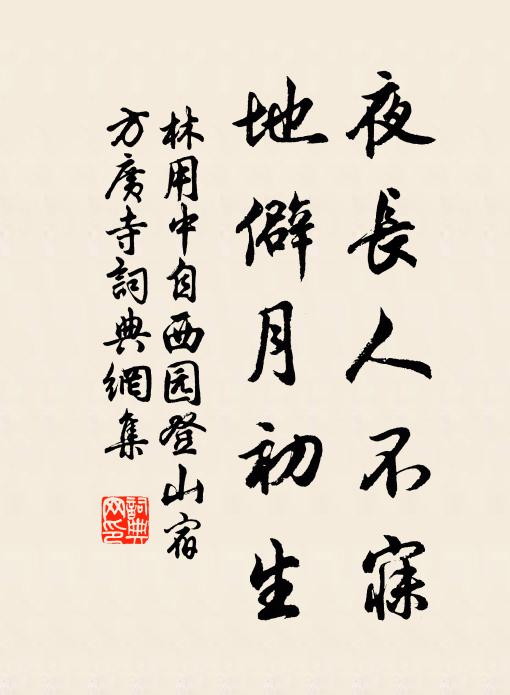 夜長人不寐
地僻月初生
林用中自西园登山宿
方廣寺詞典網集
詞典
网印